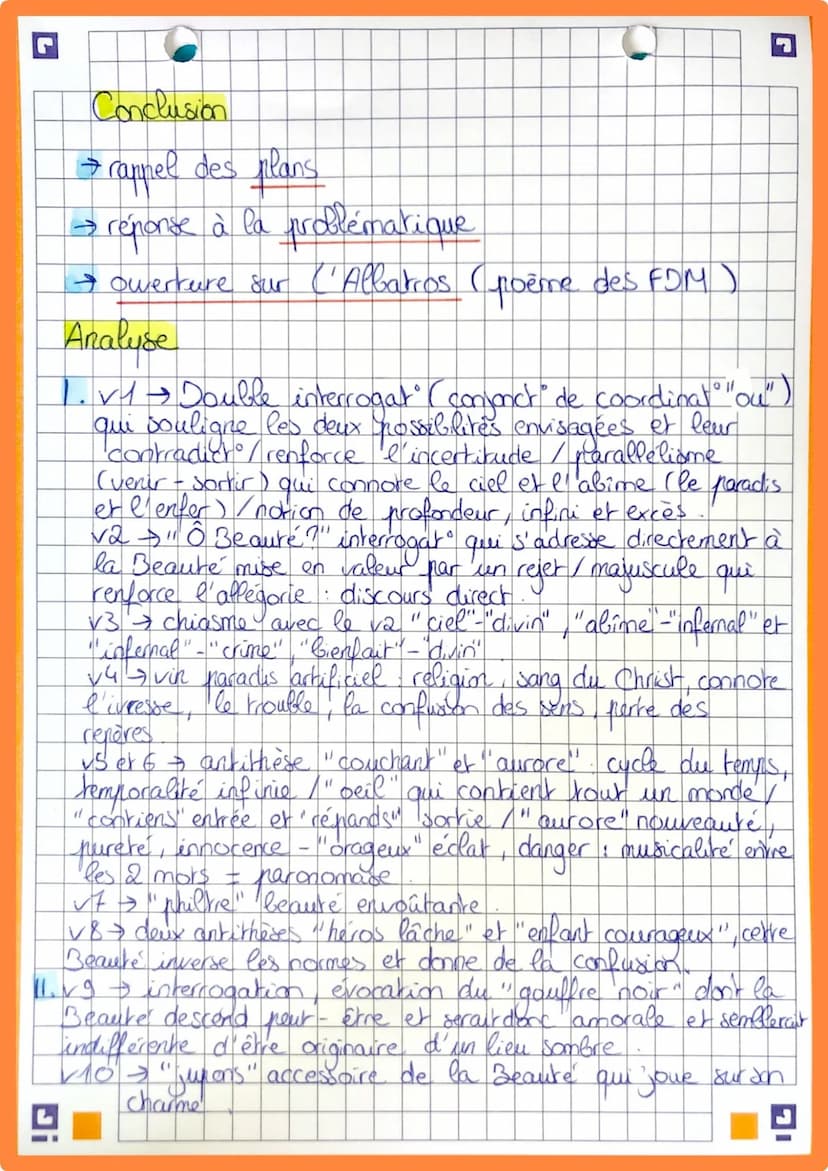 Conclusion
→ rappel des plans
→ réponse à la problématique
→ ouverture sur l'Albatros (poème des FDM)
Analyse
I. v1 → Double interrogat° (conjonct° de coordinat° "ou")
qui souligne les deux possibilités envisagées et leur
contradict° / renforce l'incertitude / parallélisme
(venir - sortir) qui connote le ciel et l'abîme (le paradis
et l'enfer) / notion de profondeur, infini et excès.
v2 → "Ô Beauté?" interrogat° qui s'adresse directement à
la Beauté mise en valeur par un rejet / majuscule qui
renforce l'allégorie : discours direct.
v3 → chiasme avec le v2 "ciel"-"divin", "abîme"-"infernal" et
"infernal"-"crime", "bienfait"-"divin"
v4 → vin paradis artificiel : religion, sang du Christ, connote
l'ivresse, le trouble, la confusion des sens, perte des
repères.
v5 et 6 → antithèse "couchant" et "aurore" : cycle du temps,
temporalité infinie / "oeil" qui contient tout un monde /
"contiens" entrée et "répands" sortie / "aurore" nouveauté,
pureté, innocence - "orageux" éclat, danger : musicalité entre
les 2 mots = paronomase.
v7 → "philtre" beauté envoûtante.
v8 → deux antithèses "héros lâche" et "enfant courageux", cette
Beauté inverse les normes et donne de la confusion.
II. v9 → interrogation, évocation du "gouffre noir" dont la
Beauté descend peut-être et serait donc amorale et semblerait
indifférente d'être originaire d'un lieu sombre.
v10 → "jupons" accessoire de la Beauté qui joue sur son
charme